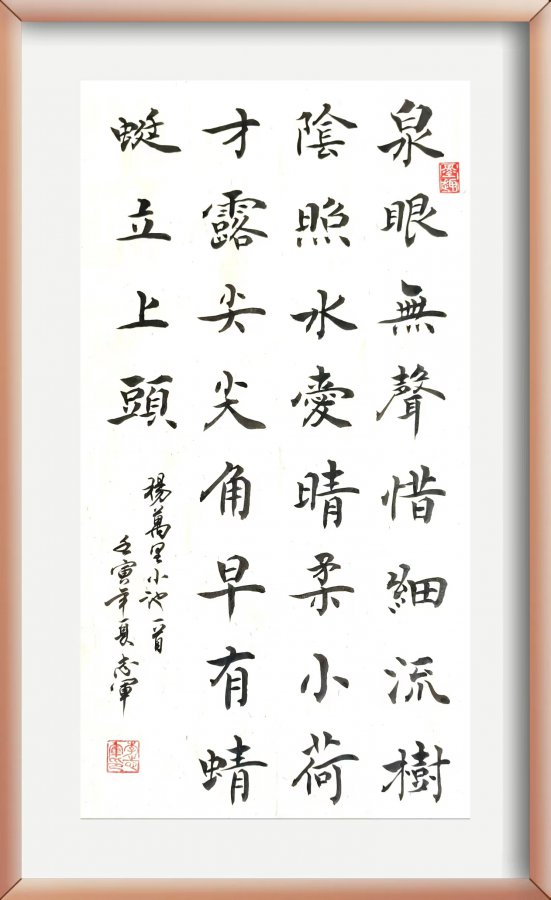 泉眼無聲惜細流樹
陰照水愛晴柔小荷
才露尖尖角早有蜻
蜓立上頭
楊萬里小池一首
壬寅年夏志軍
墨趣
李志軍印